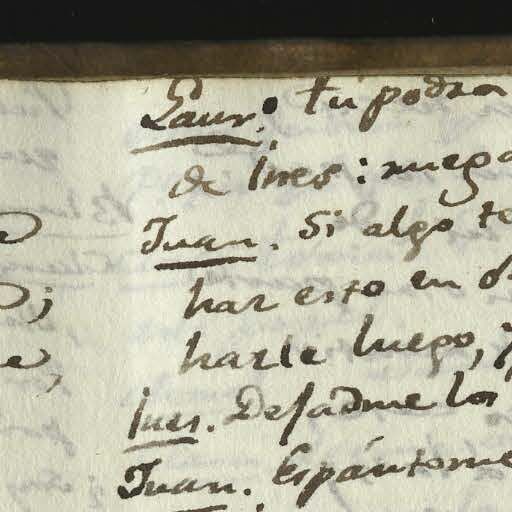 Laurº. tu podra
de Ines: ruega
Juan. Si algo te
haz esto en
hazle luego,
Ines. Dejadme los
Juan. Espántome